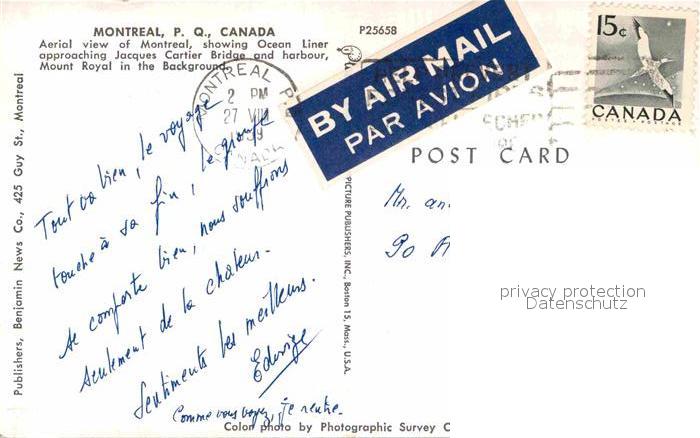 MONTREAL, P. Q., CANADA
Aerial view of Montreal, showing Ocean Liner
approaching Jacques Cartier Bridge and harbour,
Mount Royal in the Background.
P25658
MONTREAL P
2 PM
27 VIII
1959
CANADA
BY AIR MAIL
PAR AVION
15¢
CANADA
POST CARD
Tout va bien, le voyage
touche à sa fin, le groupe
se comporte bien, nous souffrons
seulement de la chaleur.
Sentiments les meilleurs.
Edwige
Comme vous voyez, je rentre.
Mr. an
Po
privacy protection
Datenschutz
Publishers, Benjamin News Co., 425 Guy St., Montreal
PICTURE PUBLISHERS, INC., Boston 15, Mass., U.S.A.
Color photo by Photographic Survey C